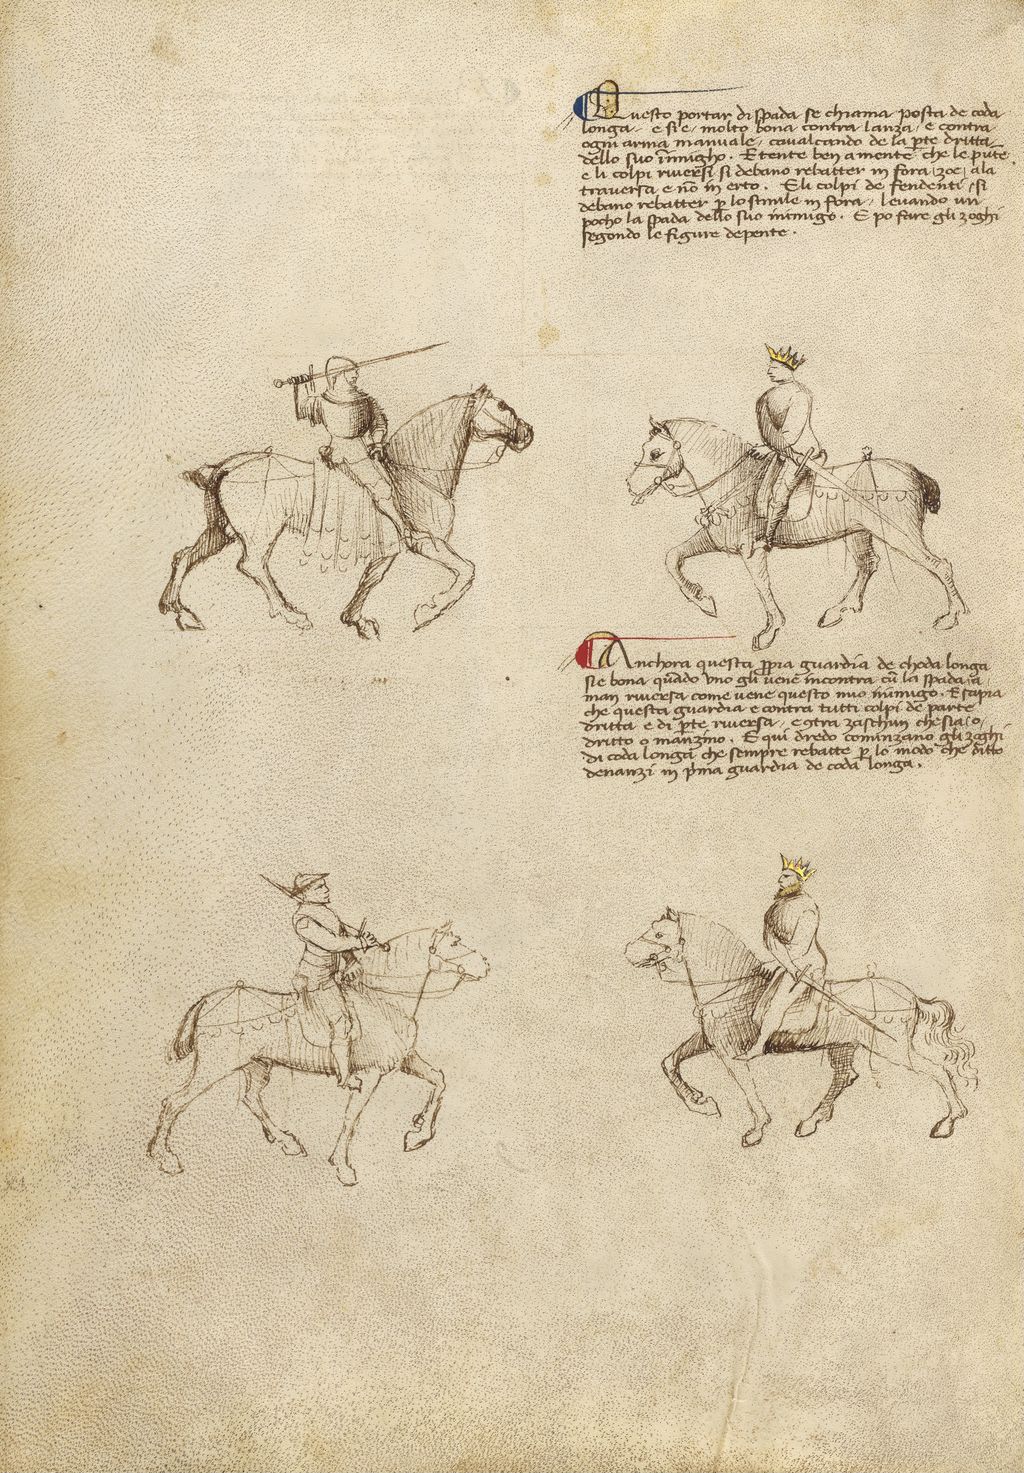 Questo portar di spada se chiama posta de coda
longa· e si e· molto bona contra lanza· e contra
ogni arma manuale· cavalcando de la p̄te dritta
dello suo inimigho. E tente ben a mente che le pūte
e li colpi riversi si debano rebatter in fora zoe, ala
traversa e nō in erto. E li colpi de fendenti, si
debano rebatter p̱ lo simile in fora, levando un
pocho la spada dello suo inimigo. E po fare gli zoghi
segondo le figure depente.
Anchora questa ꝓpia guardia de choda longa
sie bona quādo uno gli vene incontra cū la spada, a
man riversa come vene questo mio inimigo. E sapia
che questa guardia e contra tutti colpi de parte
dritta e di p̄te riversa, e ꝯtra zaschun che sia, o,
dritto o manzino. E qui dredo cominzano gli zoghi
di coda longa che sempre rebatte p̱ lo modo che ditto
denanzi in p̄ma guardia de coda longa.